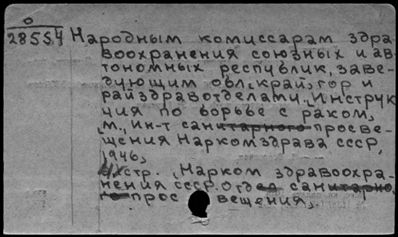 0
28554 Народным комиссарам здра
воохранения союзных и ав-
тономных республик, заве-
дующим обл, край, гор и
райздравотделами. Инструк
ция по борьбе с раком,
м., ин-т санитарного просве-
щения Наркомздрава СССР,
1946,
стр. (Нарком здравоохра-
нения СССР. Отдел санитарно
го прос вещения,